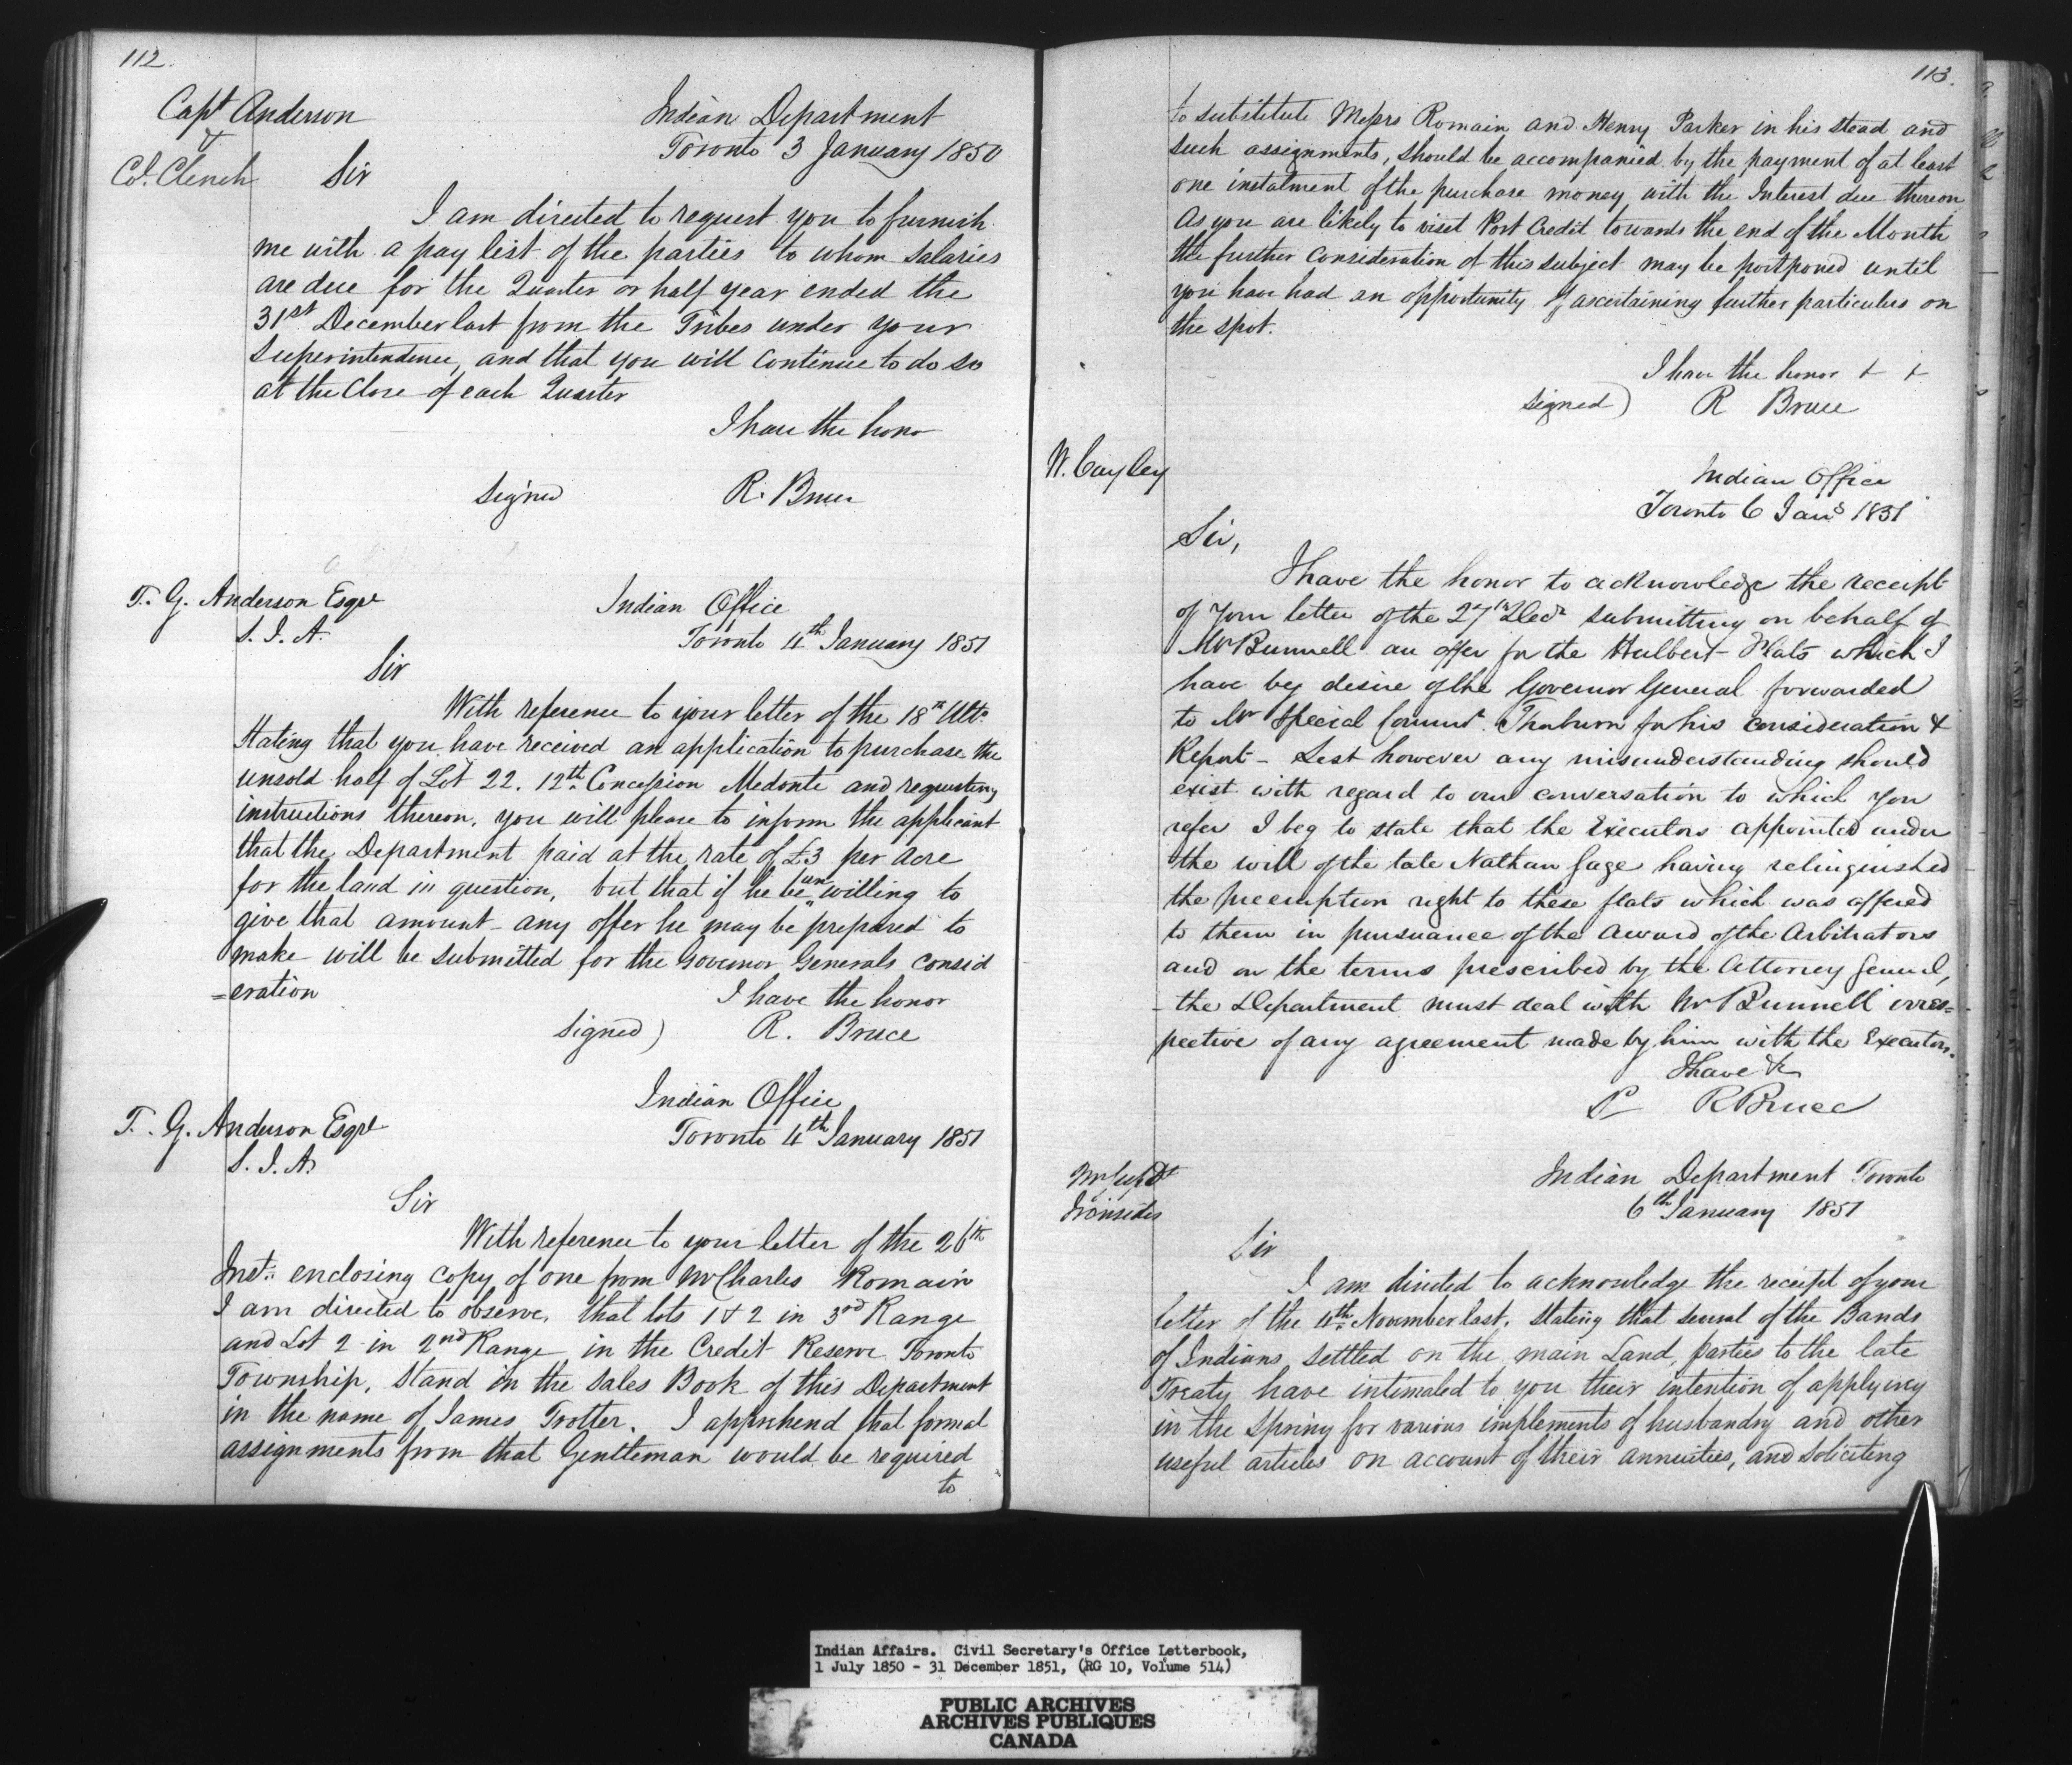 112.
Capt Anderson
&
Col. Clench
Indian Department
Toronto 3 January 1850
Sir
I am directed to request you to furnish
me with a pay list of the parties to whom salaries
are due for the Quarter or half year ended the
31st December last from the Tribes under your
Superintendence, and that you will continue to do so
at the Close of each Quarter
I have the honor
signed R. Bruce
T. G. Anderson Esqre
S. I. A.
Indian Office
Toronto 4th January 1851
Sir
With reference to your letter of the 18th Ulto
Stating that you have received an application to purchase the
unsold half of Lot 22. 12th Concession Medonte and requesting
instructions thereon, you will please to inform the applicant
that the Department paid at the rate of £3 per Acre
for the land in question, but that if he be unwilling to
give that amount - any offer he may be prepared to
make will be submitted for the Governor Generals consid
=eration
I have the honor
signed) R. Bruce
T. G. Anderson Esqre
S. I. A.
Indian Office
Toronto 4th January 1851
Sir
With reference to your letter of the 26th
Inst: enclosing copy of one from Mr Charles Romain
I am directed to observe, that lots 1 & 2 in 3rd Range
and Lot 2 in 2nd Range in the Credit Reserve Toronto
Township, Stand in the Sales Book of this Department
in the name of James Trotter. I apprehend that formal
assignments from that Gentleman would be required
to
113.
to substitute Messrs Romain and Henry Parker in his stead and
such assignments, should be accompanied by the payment of at least
one instalment of the purchase money with the Interest due thereon
As you are likely to visit Port Credit towards the end of the Month
the further Consideration of this subject may be postponed until
you have had an opportunity of ascertaining further particulars on
the spot.
I have the honor + +
signed) R Bruce
W. Cayley
Indian Office
Toronto 6 Jany 1851
Sir,
I have the honor to acknowledge the receipt
of your letter of the 27th Decr submitting on behalf of
Mr Bunnell an offer for the Hulbert Flats which I
have by desire of the Governor General forwarded
to Mr Special Commr Thorburn for his consideration &
Report - Lest however any misunderstanding should
exist with regard to our conversation to which you
refer I beg to state that the Executors appointed under
the will of the late Nathan Gage having relinquished
the preemption right to these flats which was offered
to them in pursuance of the award of the Arbitrators
and on the terms prescribed by the Attorney General,
- the Department must deal with Mr Bunnell irres=
pective of any agreement made by him with the Executors.
I have &
S R Bruce
Mr Supdt
Ironsides
Indian Department Toronto
6th January 1851
Sir
I am directed to acknowledge the receipt of your
letter of the 4th November last, stating that several of the Bands
of Indians settled on the main Land, parties to the late
Treaty have intimated to you their intention of applying
in the Spring for various implements of husbandry and other
useful articles on account of their annuities, and soliciting
Indian Affairs. Civil Secretary's Office Letterbook,
1 July 1850 - 31 December 1851, (RG 10, Volume 514)
PUBLIC ARCHIVES
ARCHIVES PUBLIQUES
CANADA